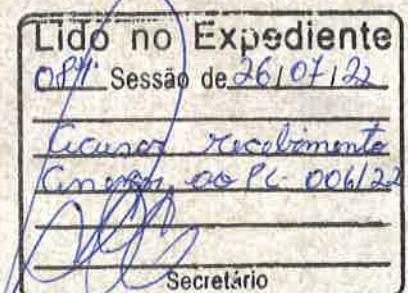 Lido no Expediente
081ª Sessão de 26/07/22
Acusar recebimento
Anexar ao PL 006/22
Secretário